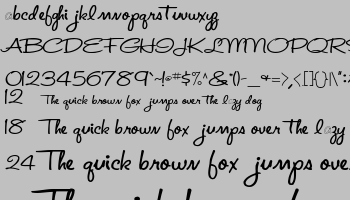 abcdefghi jklmnopqrstuvwxyz
ABCDEFGHIJKLMNOPQRS
0123456789
12 The quick brown fox jumps over the lazy dog
18 The quick brown fox jumps over the lazy
24 The quick brown fox jumps over
The quick brown fox